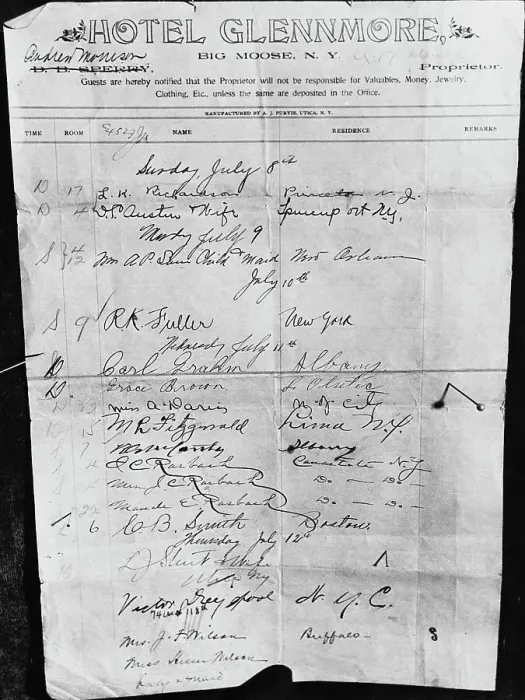 HOTEL GLENNMORE,
BIG MOOSE, N. Y.
Andrew Morrison
B. B. SPERRY, Proprietor.
Guests are hereby notified that the Proprietor will not be responsible for Valuables, Money, Jewelry,
Clothing, Etc., unless the same are deposited in the Office.
MANUFACTURED BY A. J. PURVIS, UTICA, N. Y.
TIME ROOM NAME RESIDENCE REMARKS
Sunday, July 8th
D 17 L. H. Richardson Princeton N. J.
D 4 Austin Wife N.Y.
Mondy July 9
S 4 12 Mrs A. P. Sam Child & maid New Orleans
July 10th
S 9 R. K. Fuller New York
Wednesday July 11th
D Carl Grahm Albany
D. Grace Brown S. Otselic
D Miss A. Davis N. Y. City
D 15 M R. Fitzgerald Lima N.Y.
7 Albany
J. C. Rasbach Canastota N.Y
Mrs J. C. Rasbach Do. — Do. —
22 Maude E Rasbach Do. — Do. —
6 C B. Smith Boston.
Thursday July 12th
& Wife
NY
Victor N. Y. C.
Mrs. J. F. Wilson Buffalo S
Miss Wilson
baby & maid